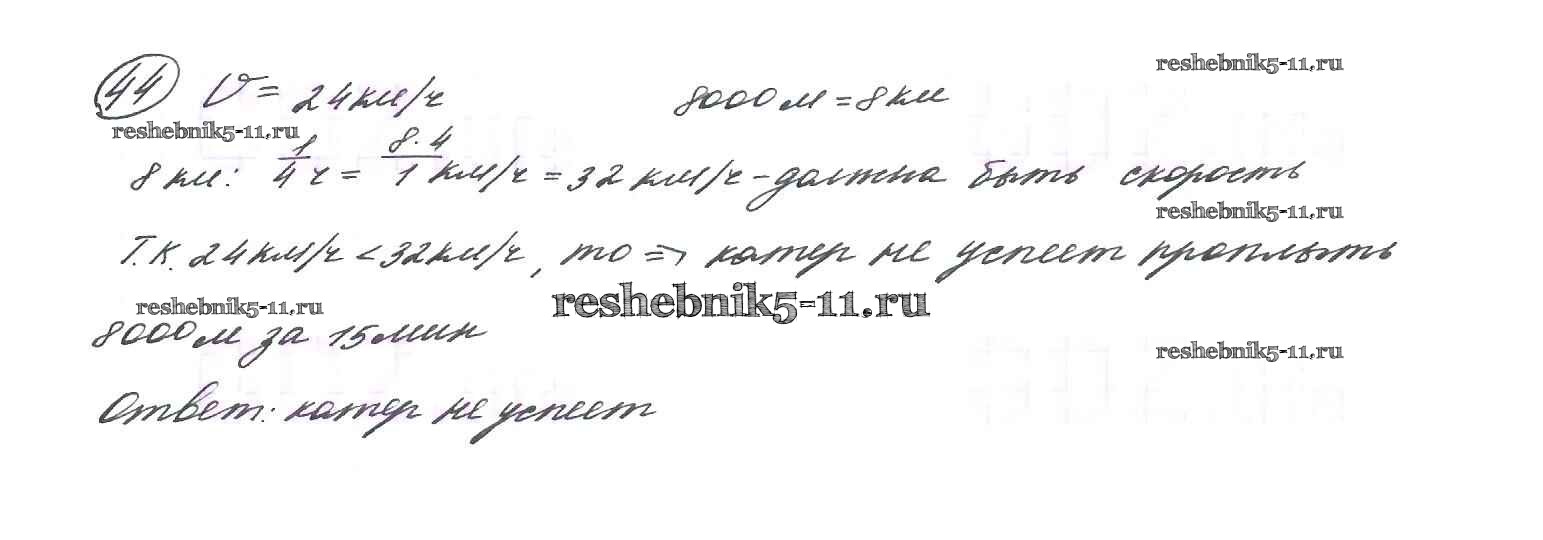 44 V = 24 км/ч 8000 м = 8 км
reshebnik5-11.ru
reshebnik5-11.ru
8 км : 1/4 ч = 8·4/1 км/ч = 32 км/ч – должна быть скорость
reshebnik5-11.ru
Т.к. 24 км/ч < 32 км/ч, то => катер не успеет проплыть
reshebnik5-11.ru
reshebnik5-11.ru
8000 м за 15 мин
reshebnik5-11.ru
Ответ: катер не успеет